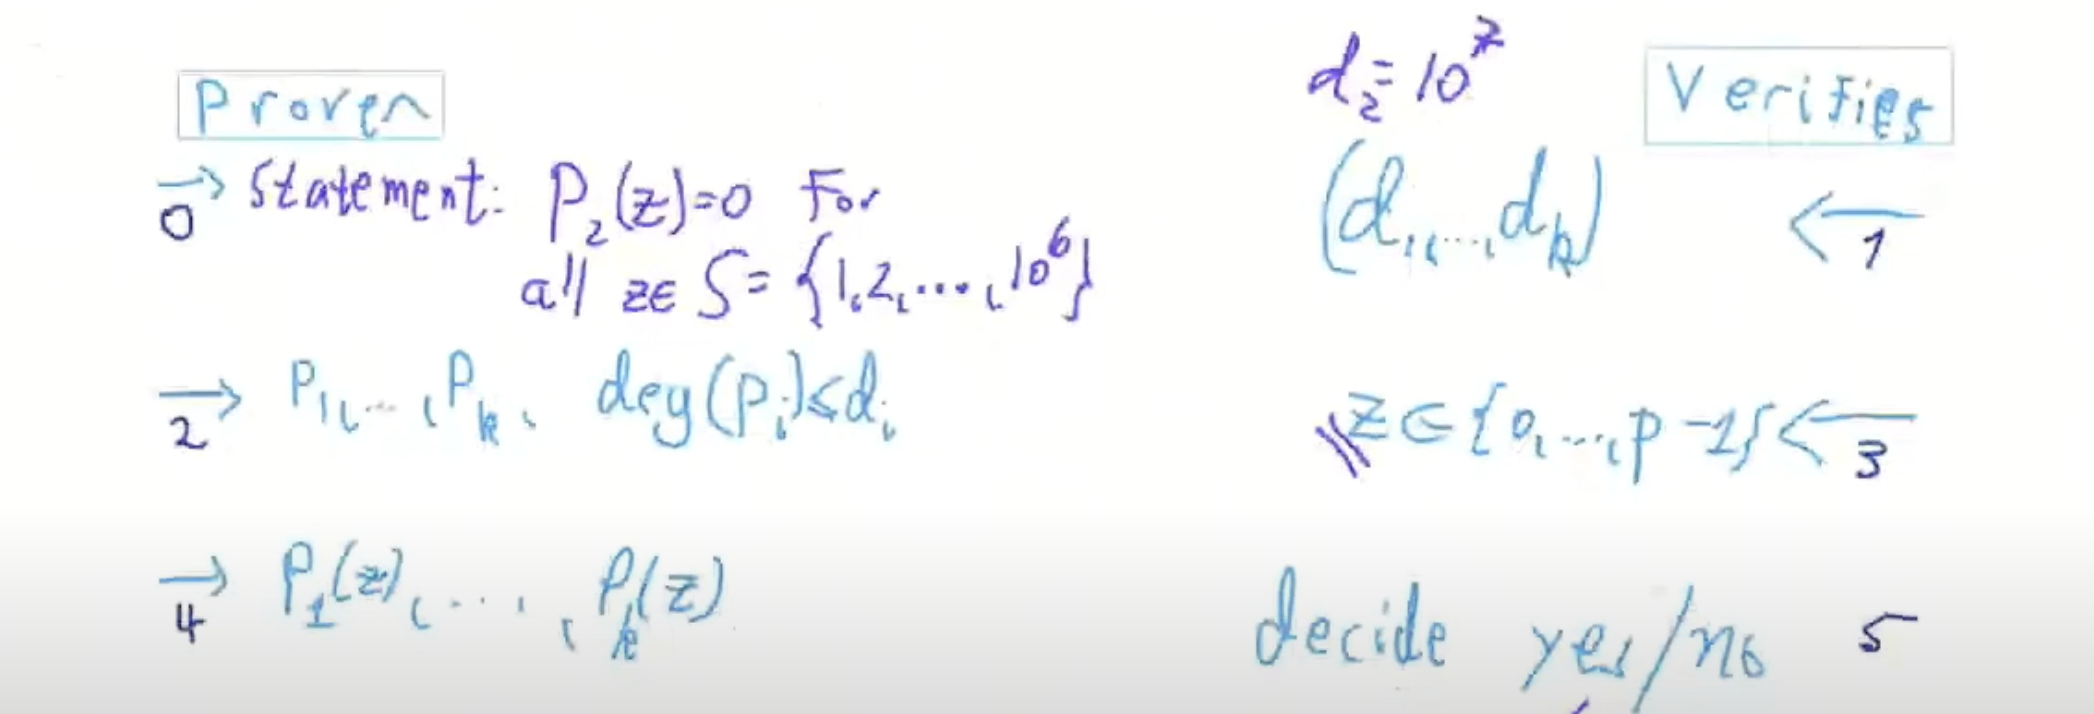 Prover
d₂ = 10⁷
Verifier
→ 0 Statement: P₂(z)=0 For
all z∈ S = {1,2,...,10⁶}
(d₁,...,dₖ) ← 1
→ 2 P₁,...,Pₖ, deg(Pᵢ)≤dᵢ
z∈{0,...,p-1} ← 3
→ 4 P₁(z),...,Pₖ(z)
decide yes/no 5